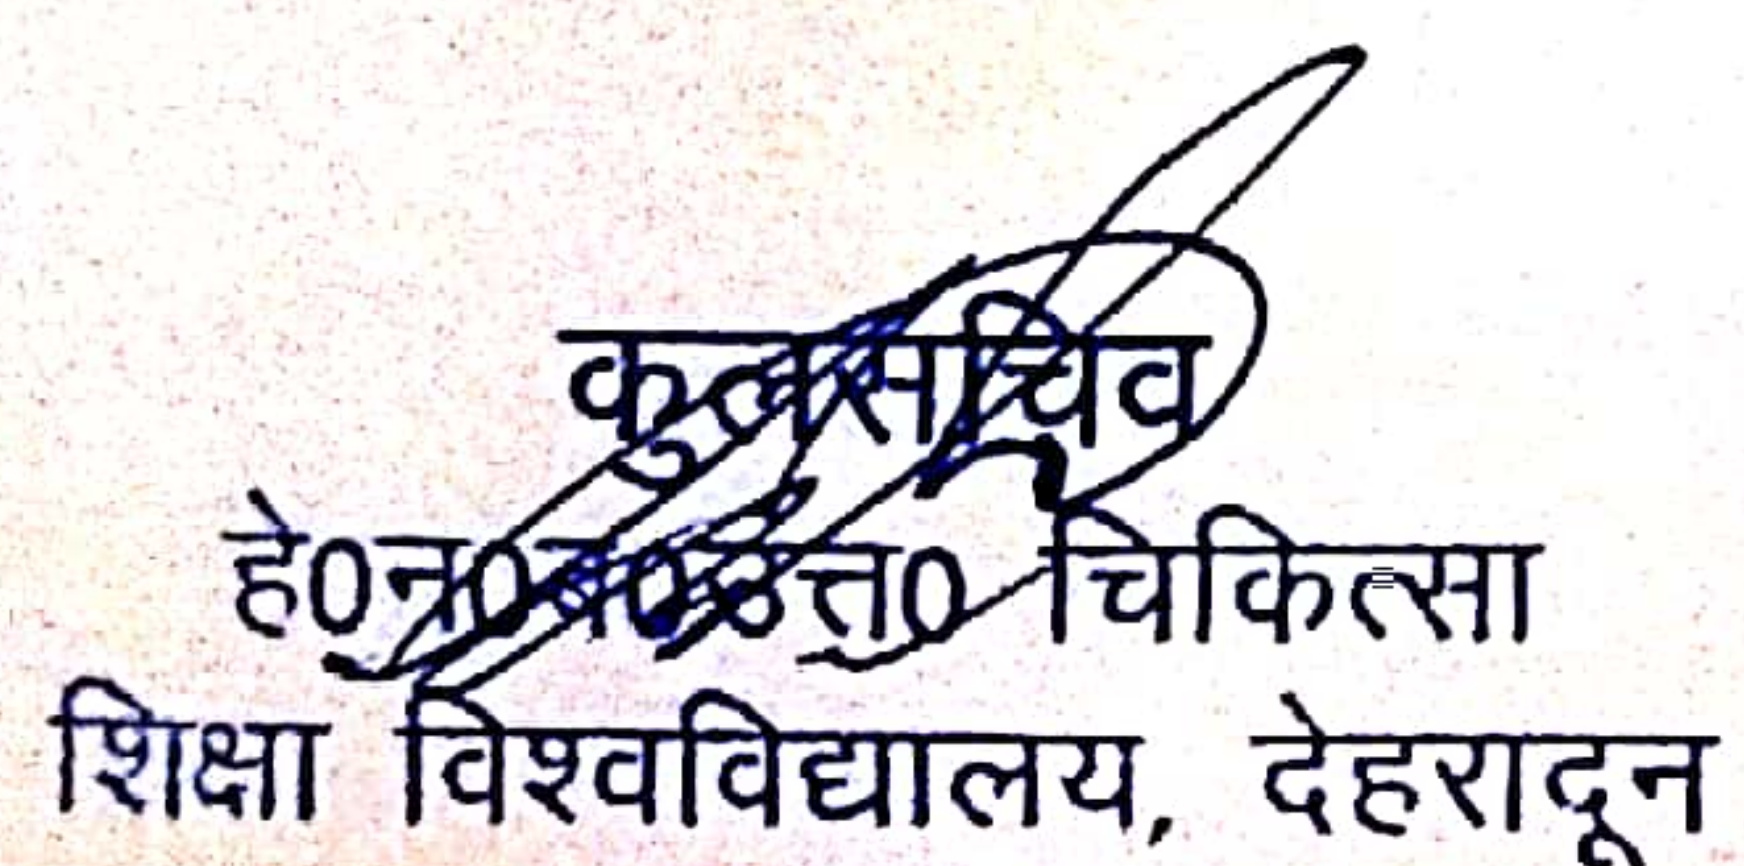 कुलसचिव
हे०न०ब०उत्त० चिकित्सा
शिक्षा विश्वविद्यालय, देहरादून